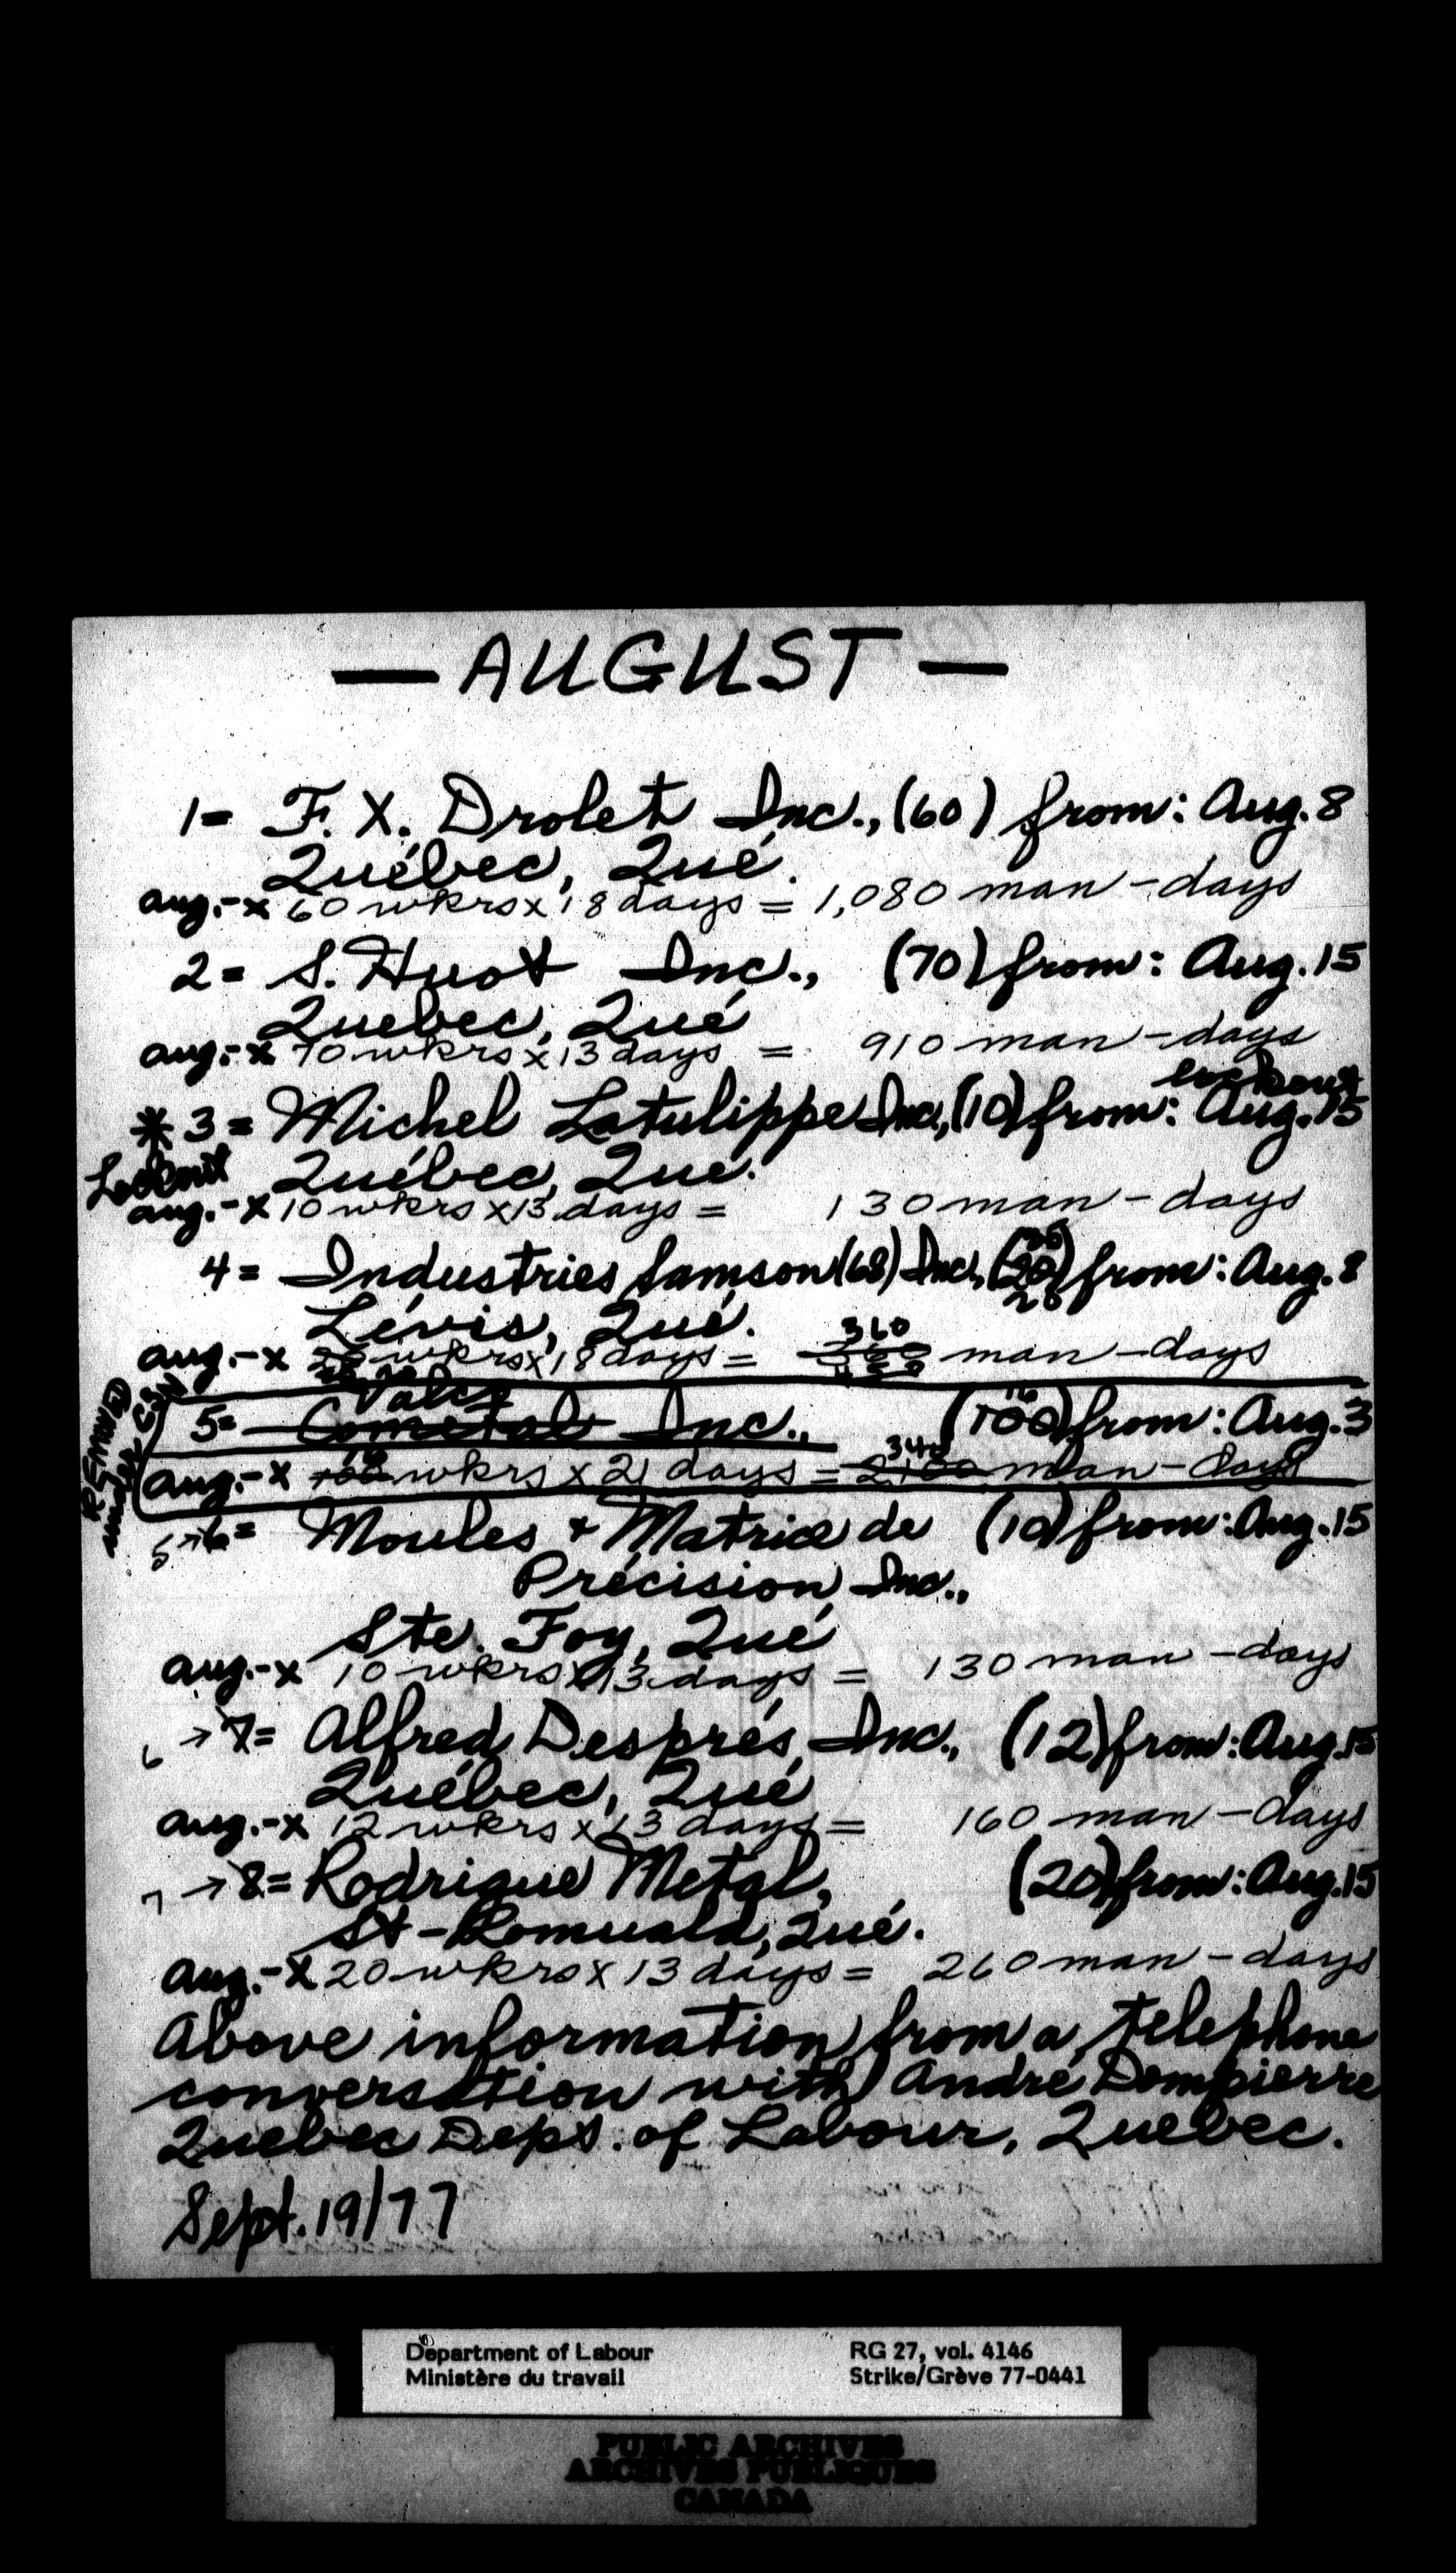 — AUGUST —
1= F. X. Drolet Inc., (60) from: Aug. 8
Québec, Qué.
aug.-x 60 wkrs x 18 days = 1,080 man-days
2= S. Huot Inc., (70) from: Aug. 15
Quebec, Qué
aug.-x 70 wkrs x 13 days = 910 man-days
lockout
* 3= Michel Latulippe Inc., (10) from: Aug. 15
Lockout Québec, Qué.
aug.-x 10 wkrs x 13 days = 130 man-days
4= Industries Samson (68) Inc., (20) from: Aug. 8
20
Lévis, Qué.
360
aug.-x wkrs x 18 days = man-days
REMOVED
5= Cométal Inc., (100) from: Aug. 3
16
340
aug.-x 100 wkrs x 21 days = 2100 man-days
5 → 6= Moules & Matrice de (10) from: Aug. 15
Précision Inc.,
Ste. Foy, Qué
aug.-x 10 wkrs x 13 days = 130 man-days
6 → 7= Alfred Després Inc., (12) from: Aug. 15
Québec, Qué
aug.-x 12 wkrs x 13 days = 160 man-days
7 → 8= Rodrigue Metal, (20) from: Aug. 15
St-Romuald, Qué.
aug.-x 20 wkrs x 13 days = 260 man-days
Above information from a telephone
conversation with André Dompierre
Quebec Dept. of Labour, Quebec.
Sept. 19/77
Department of Labour RG 27, vol. 4146
Ministère du travail Strike/Grève 77-0441
PUBLIC ARCHIVES
ARCHIVES PUBLIQUES
CANADA